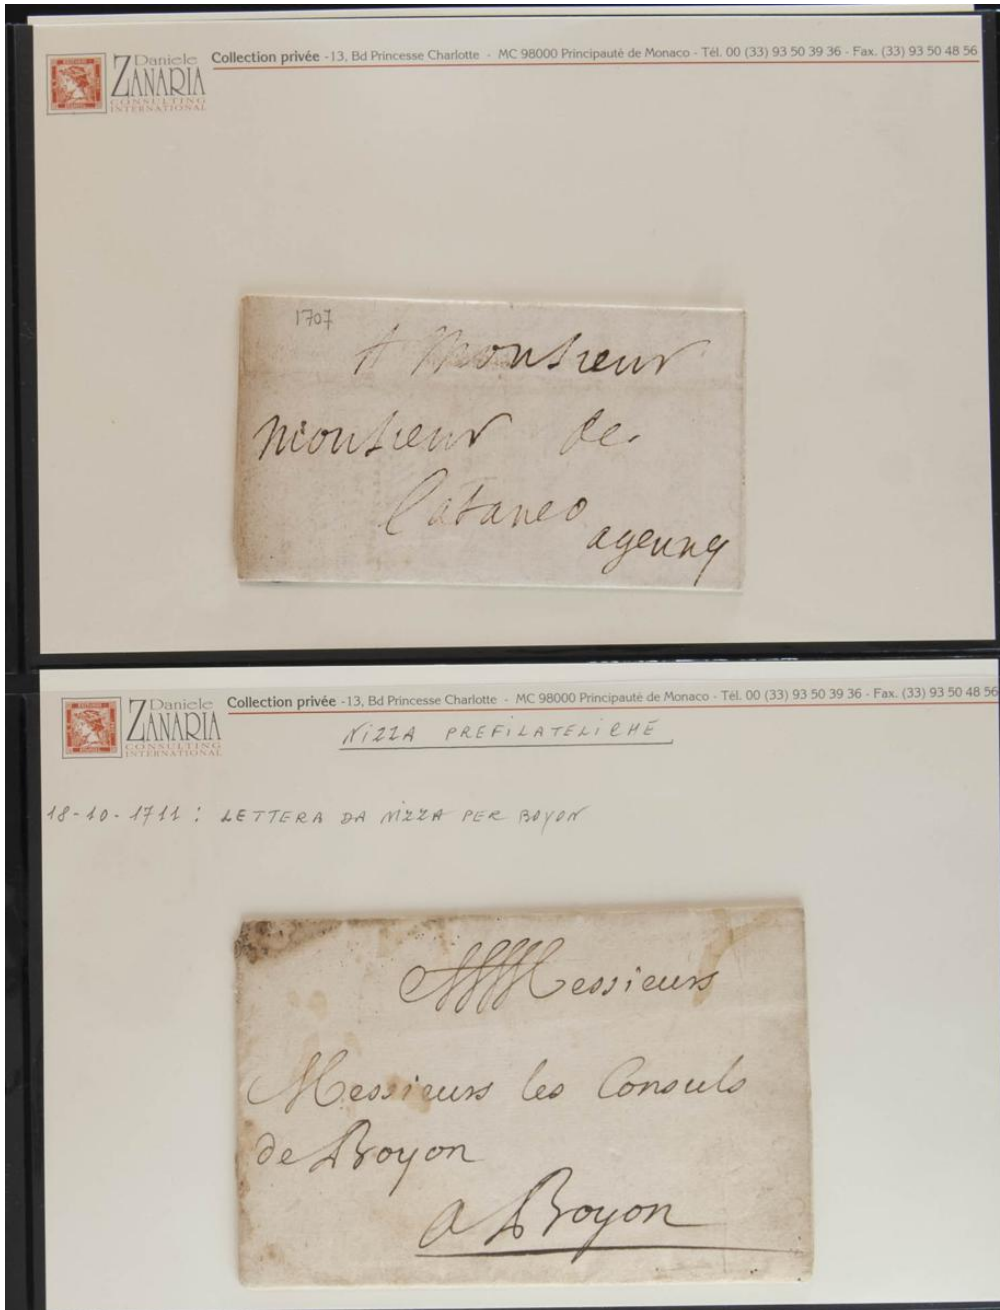 Daniele
ZANARIA
CONSULTING
INTERNATIONAL
Collection privée - 13, Bd Princesse Charlotte - MC 98000 Principauté de Monaco - Tél. 00 (33) 93 50 39 36 - Fax. (33) 93 50 48 56
1707
A Monsieur
Monsieur de
Cataneo
Daniele
ZANARIA
CONSULTING
INTERNATIONAL
Collection privée - 13, Bd Princesse Charlotte - MC 98000 Principauté de Monaco - Tél. 00 (33) 93 50 39 36 - Fax. (33) 93 50 48 56
NIZZA PREFILATELICHE
18-10-1711 : LETTERA DA NIZZA PER BOYON
Messieurs
Messieurs les Consuls
de Boyon
a Boyon